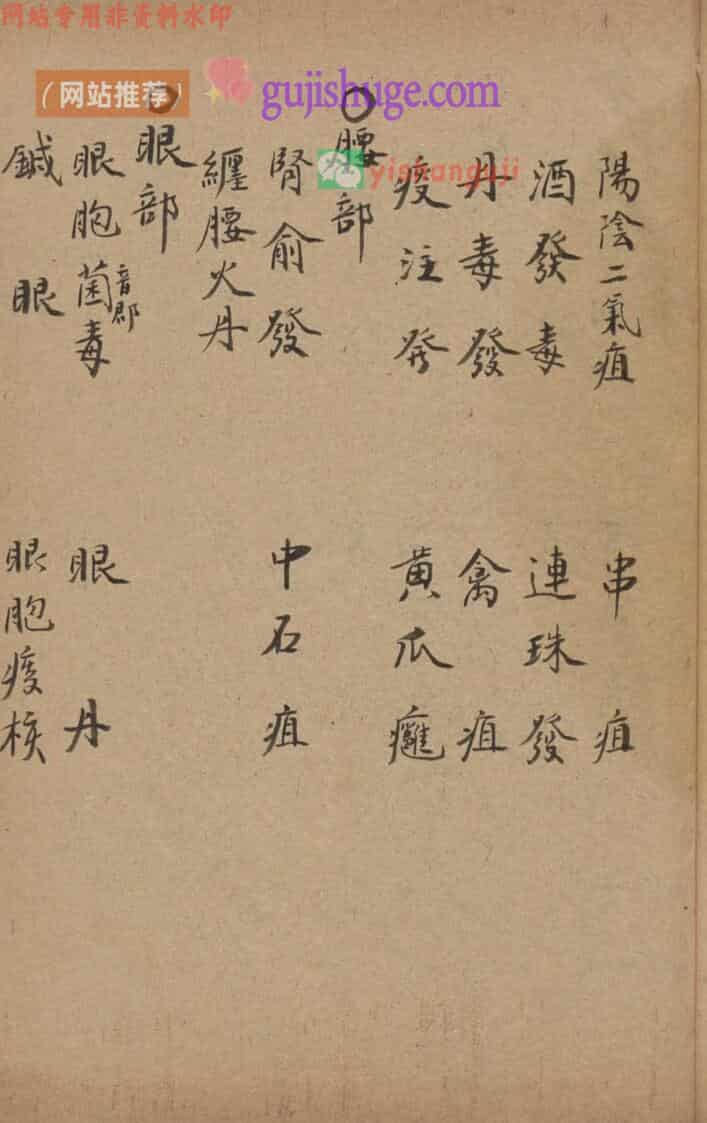 网站专用非资料水印
（网站推荐）
gujishuge.com
yishanguji
陽陰二氣疽　串疽
酒發毒　連珠發
丹毒發　禽疽
痰注発　黄瓜癰
○腰部
腎俞發　中石疽
纏腰火丹
○眼部
眼胞菌毒　音郡　眼丹
鍼眼　眼胞痰核